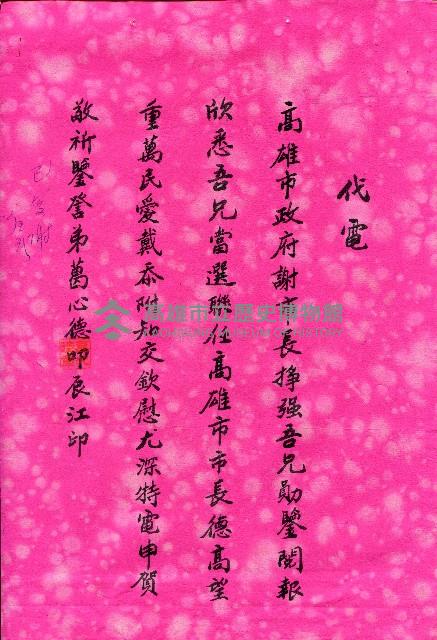 代電
高雄市政府謝市長掙强吾兄勛鑒閱報
欣悉吾兄當選聯任高雄市市長德高望
重萬民愛戴忝附知交欽慰尤深特電申賀
敬祈鑒詧弟葛心德叩辰江印
已復謝
高雄市立歷史博物館
KAOHSIUNG MUSEUM OF HISTORY